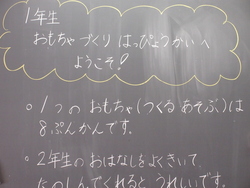 1年生
おもちゃづくり はっぴょうかいへ
ようこそ!
○1つの おもちゃ(つくる あそぶ)は
8ぷんかんです。
○2年生のおはなしをよくきいて、
たのしんでくれると、うれしいです。